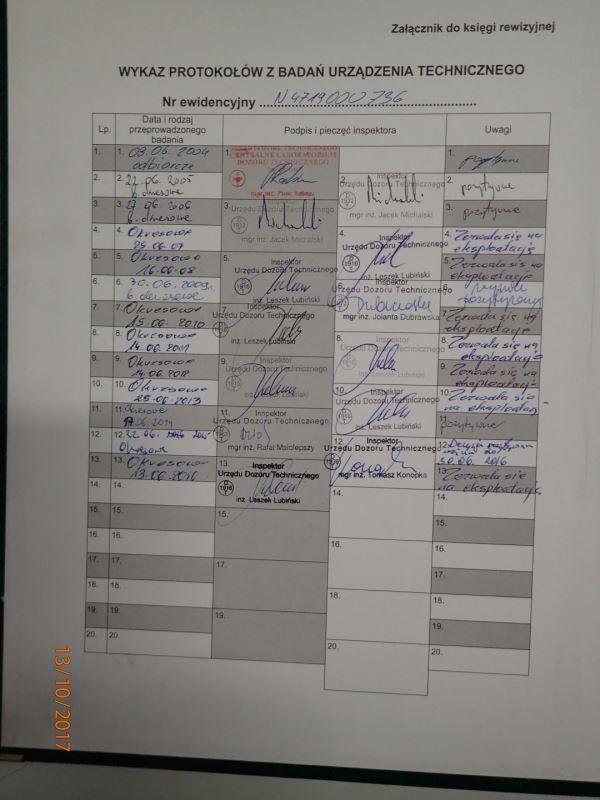 Załącznik do księgi rewizyjnej
WYKAZ PROTOKOŁÓW Z BADAŃ URZĄDZENIA TECHNICZNEGO
Nr ewidencyjny N4719000736
Lp. Data i rodzaj przeprowadzonego badania Podpis i pieczęć inspektora Uwagi
1. 1. 08.06.2004 odbiorcze 1. CENTRALNE LABORATORIUM DOZORU TECHNICZNEGO 1. pozytywne
2. 2. 22.06.2005 b. okresowe 2. Inspektor Urzędu Dozoru Technicznego mgr inż. Jacek Michalski 2. pozytywne
3. 3. b. okresowe 3. Inspektor Urzędu Dozoru Technicznego mgr inż. Jacek Michalski 3. pozytywne
4. 4. Okresowe 25.06.07 4. Inspektor Urzędu Dozoru Technicznego inż. Leszek Lubiński 4. Zezwala się na eksploatację
5. 5. Okresowe 16.06.08 5. Inspektor Urzędu Dozoru Technicznego inż. Leszek Lubiński 5. Zezwala się na eksploatację
6. 6. 30.06.2009r. b. okresowe 6. Inspektor Urzędu Dozoru Technicznego mgr inż. Jolanta Dubrawska 6.
7. 7. Okresowe 15.06.2010 7. Inspektor Urzędu Dozoru Technicznego inż. Leszek Lubiński 7. Zezwala się na eksploatację
8. 8. Okresowe 14.06.2011 8. Inspektor Urzędu Dozoru Technicznego inż. Leszek Lubiński 8. Zezwala się na eksploatację
9. 9. Okresowe 14.06.2012 9. Inspektor Urzędu Dozoru Technicznego inż. Leszek Lubiński 9. Zezwala się na eksploatację
10. 10. Okresowe 25.06.2013 10. Inspektor Urzędu Dozoru Technicznego inż. Leszek Lubiński 10. Zezwala się na eksploatację
11. 11. Okresowe 11. Inspektor Urzędu Dozoru Technicznego mgr inż. Rafał Małolepszy 11. pozytywne
12. 12. 22.06. Okresowe 12. Inspektor Urzędu Dozoru Technicznego mgr inż. Tomasz Konopka 12. Decyzja 30.06.2016
13. 13. Okresowe 13.06.2016 13. Inspektor Urzędu Dozoru Technicznego inż. Leszek Lubiński 13. Zezwala się na eksploatację
14. 14. 14. 14.
15. 15. 15. 15.
16. 16. 16. 16.
17. 17. 17. 17.
18. 18. 18. 18.
19. 19. 19. 19.
20. 20. 20. 20.
13/10/2017